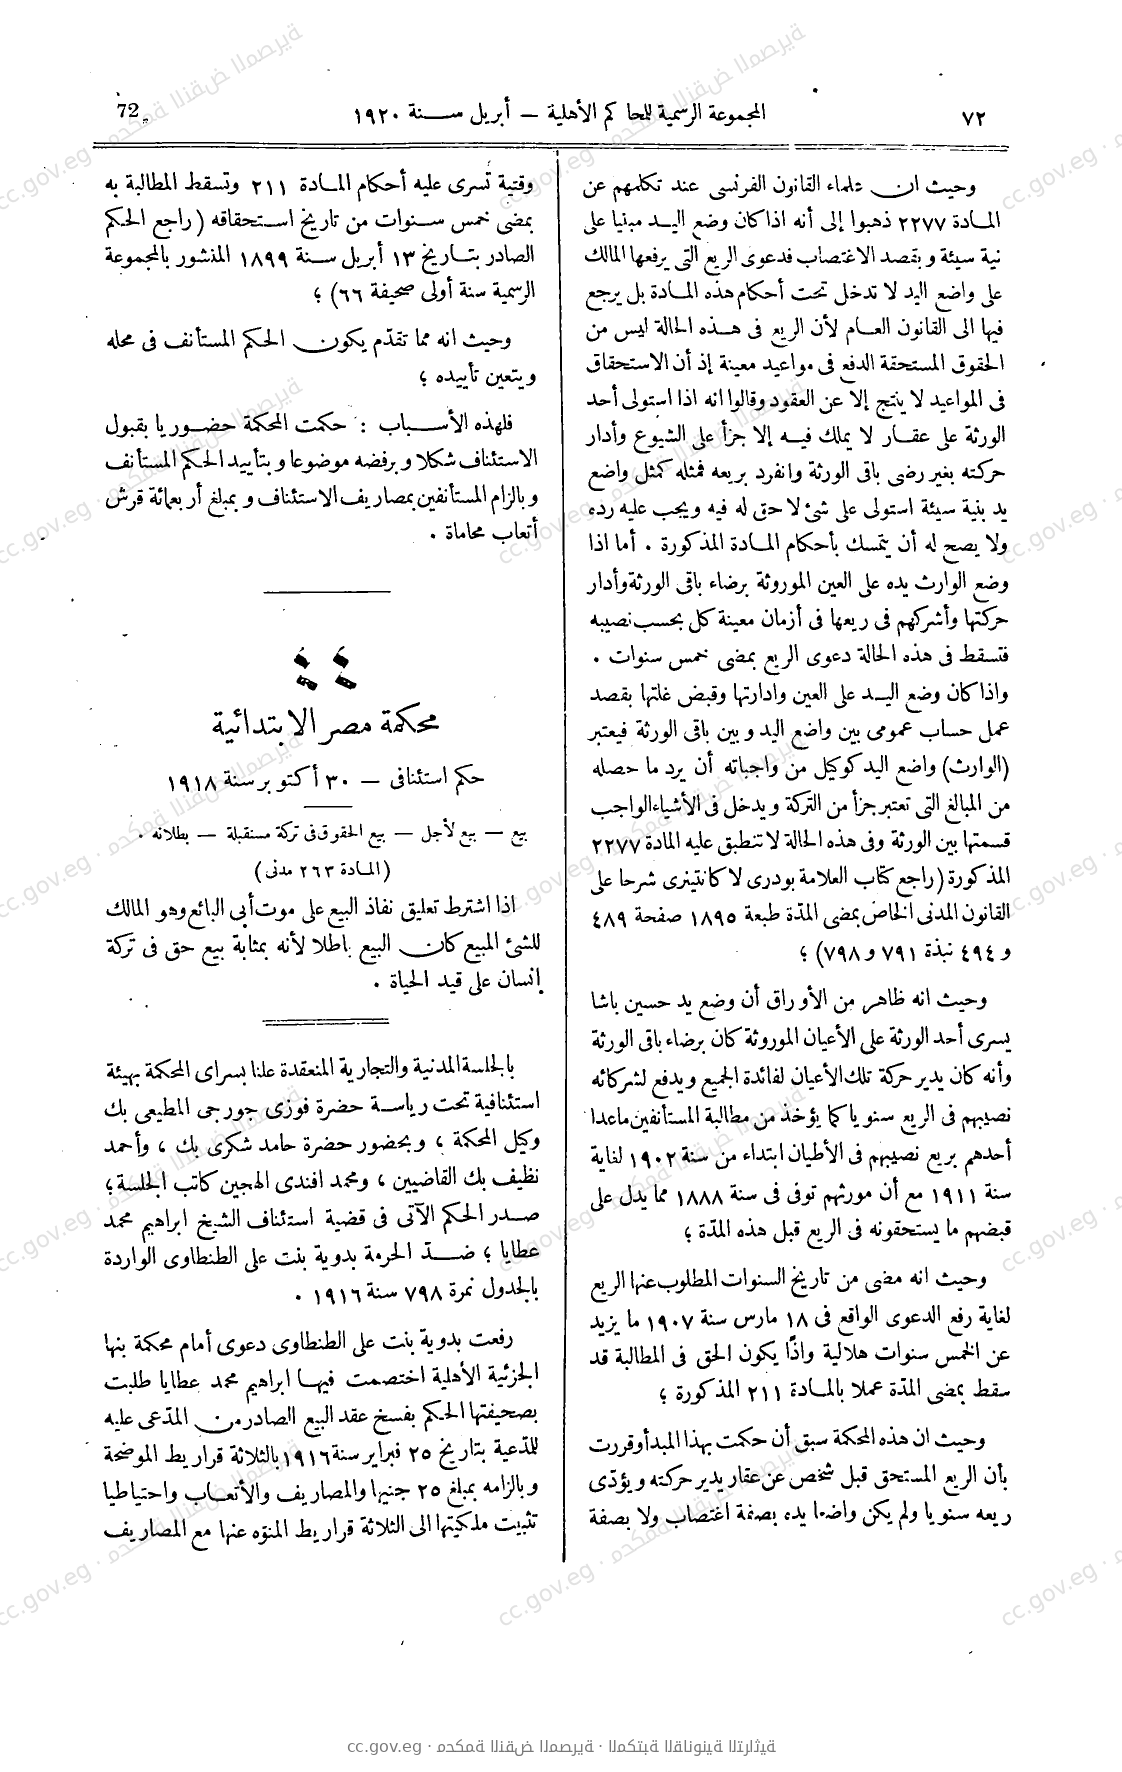 ٧٢
المجموعة الرسمية للمحاكم الأهلية — أبريل سنة ١٩٢٠
72
وحيث ان علماء القانون الفرنسى عند تكلمهم عن
المادة ٢٢٧٧ ذهبوا إلى أنه اذا كان وضع اليد مبنيا على
نية سيئة وبقصد الاغتصاب فدعوى الريع التى يرفعها المالك
على واضع اليد لا تدخل تحت أحكام هذه المادة بل يرجع
فيها الى القانون العام لأن الريع فى هذه الحالة ليس من
الحقوق المستحقة الدفع فى مواعيد معينة إذ أن الاستحقاق
فى المواعيد لا ينتج إلا عن العقود وقالوا انه اذا استولى أحد
الورثة على عقار لا يملك فيه إلا جزأ على الشيوع وأدار
حركته بغير رضى باقى الورثة وانفرد بريعه فمثله كمثل واضع
يد بنية سيئة استولى على شئ لا حق له فيه ويجب عليه رده
ولا يصح له أن يتمسك بأحكام المادة المذكورة . أما اذا
وضع الوارث يده على العين الموروثة برضاء باقى الورثة وأدار
حركتها وأشركهم فى ريعها فى أزمان معينة كل بحسب نصيبه
فتسقط فى هذه الحالة دعوى الريع بمضى خمس سنوات .
واذا كان وضع اليد على العين وادارتها وقبض غلتها بقصد
عمل حساب عمومى بين واضع اليد وبين باقى الورثة فيعتبر
(الوارث) واضع اليد كوكيل من واجباته أن يرد ما حصله
من المبالغ التى تعتبر جزأ من التركة ويدخل فى الأشياء الواجب
قسمتها بين الورثة وفى هذه الحالة لا تنطبق عليه المادة ٢٢٧٧
المذكورة (راجع كتاب العلامة بودرى لاكانتينرى شرحا على
القانون المدنى الخاص بمضى المدّة طبعة ١٨٩٥ صفحة ٤٨٩
و ٤٩٤ نبذة ٧٩١ و ٧٩٨) ؛
وحيث انه ظاهر من الأوراق أن وضع يد حسين باشا
يسرى أحد الورثة على الأعيان الموروثة كان برضاء باقى الورثة
وأنه كان يدير حركة تلك الأعيان لفائدة الجميع ويدفع لشركائه
نصيبهم فى الريع سنويا كما يؤخذ من مطالبة المستأنفين ماعدا
أحدهم بريع نصيبهم فى الأطيان ابتداء من سنة ١٩٠٢ لغاية
سنة ١٩١١ مع أن مورثهم توفى فى سنة ١٨٨٨ مما يدل على
قبضهم ما يستحقونه فى الريع قبل هذه المدّة ؛
وحيث انه مضى من تاريخ السنوات المطلوب عنها الريع
لغاية رفع الدعوى الواقع فى ١٨ مارس سنة ١٩٠٧ ما يزيد
عن الخمس سنوات هلالية واذًا يكون الحق فى المطالبة قد
سقط بمضى المدّة عملا بالمادة ٢١١ المذكورة ؛
وحيث ان هذه المحكمة سبق أن حكمت بهذا المبدأ وقررت
بأن الريع المستحق قبل شخص عن عقار يدير حركته ويؤدّى
ريعه سنويا ولم يكن واضعا يده بصفة اغتصاب ولا بصفة
وقتية تسرى عليه أحكام المادة ٢١١ وتسقط المطالبة به
بمضى خمس سنوات من تاريخ استحقاقه (راجع الحكم
الصادر بتاريخ ١٣ أبريل سنة ١٨٩٩ المنشور بالمجموعة
الرسمية سنة أولى صحيفة ٦٦) ؛
وحيث انه مما تقدّم يكون الحكم المستأنف فى محله
ويتعين تأييده ؛
فلهذه الأسباب : حكمت المحكمة حضوريا بقبول
الاستئناف شكلا وبرفضه موضوعا وبتأييد الحكم المستأنف
وبالزام المستأنفين بمصاريف الاستئناف وبمبلغ أربعمائة قرش
أتعاب محاماة .
٤٤
محكمة مصر الابتدائية
حكم استئنافى — ٣٠ أكتوبر سنة ١٩١٨
بيع — بيع لأجل — بيع الحقوق فى تركة مستقبلة — بطلانه .
(المادة ٢٦٣ مدنى)
اذا اشترط تعليق نفاذ البيع على موت أبى البائع وهو المالك
للشئ المبيع كان البيع باطلا لأنه بمثابة بيع حق فى تركة
إنسان على قيد الحياة .
بالجلسة المدنية والتجارية المنعقدة علنا بسراى المحكمة بهيئة
استئنافية تحت رياسة حضرة فوزى جورجى المطيعى بك
وكيل المحكمة ؛ وبحضور حضرة حامد شكرى بك ، وأحمد
نظيف بك القاضيين ، ومحمد افندى الهجين كاتب الجلسة ؛
صدر الحكم الآتى فى قضية استئناف الشيخ ابراهيم محمد
عطايا ؛ ضدّ الحرمة بدوية بنت على الطنطاوى الواردة
بالجدول نمرة ٧٩٨ سنة ١٩١٦ .
رفعت بدوية بنت على الطنطاوى دعوى أمام محكمة بنها
الجزئية الأهلية اختصمت فيها ابراهيم محمد عطايا طلبت
بصحيفتها الحكم بفسخ عقد البيع الصادر من المدّعى عليه
للمدّعية بتاريخ ٢٥ فبراير سنة ١٩١٦ بالثلاثة قراريط الموضحة
وبالزامه بمبلغ ٢٥ جنيها والمصاريف والأتعاب واحتياطيا
تثبيت ملكيتها الى الثلاثة قراريط المنوّه عنها مع المصاريف
cc.gov.eg · محكمة النقض المصرية · المكتبة القانونية التراثية